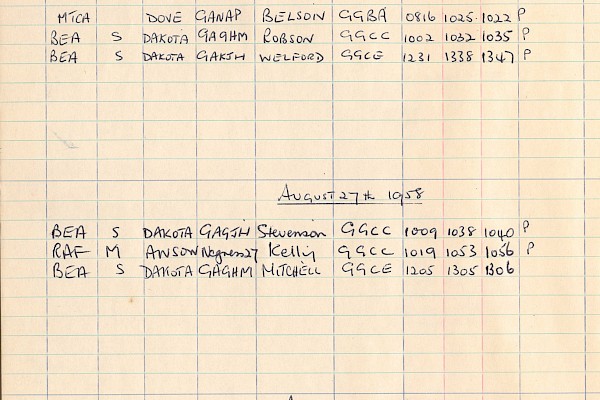 MTCA DOVE GANAP BELSON GGBA 0816 1025 1022 P
BEA S DAKOTA GAGHM ROBSON GGCC 1002 1032 1035 P
BEA S DAKOTA GAKJH WELFORD GGCE 1231 1338 1347 P
AUGUST 27th 1958
BEA S DAKOTA GAGJH Stevenson GGCC 1009 1038 1040 P
RAF M ANSON Kelly GGCC 1019 1053 1056 P
BEA S DAKOTA GAGHM MITCHELL GGCE 1205 1305 1306